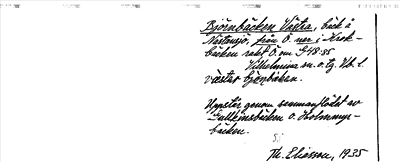 Björnbäcken Västra, bäck å
Nästansjö, från Ö. ner i Krok-
bäcken rakt Ö. om S 48:85
Vilhelmina sn. o. tg. Vb. l.
väster Björnbäcken.
Uppstår genom sammanflödet av
Tallkärnsbäcken o. Holmmyr-
bäcken.
Th. Eliasson, 1935